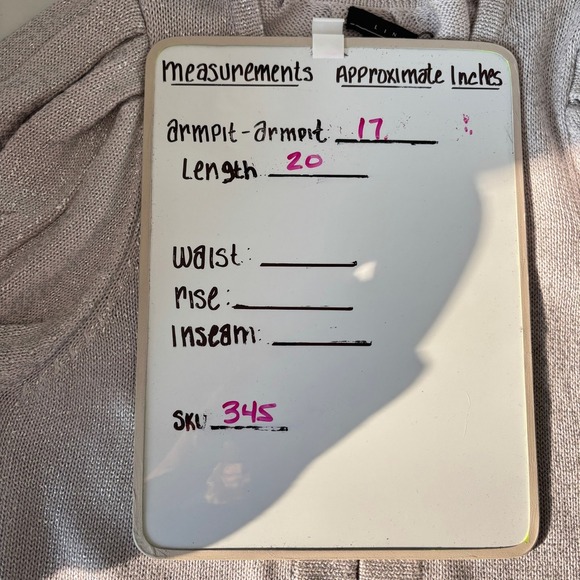 measurements Approximate Inches
armpit-armpit 17
Length 20
waist:
rise:
Inseam:
SKU 345